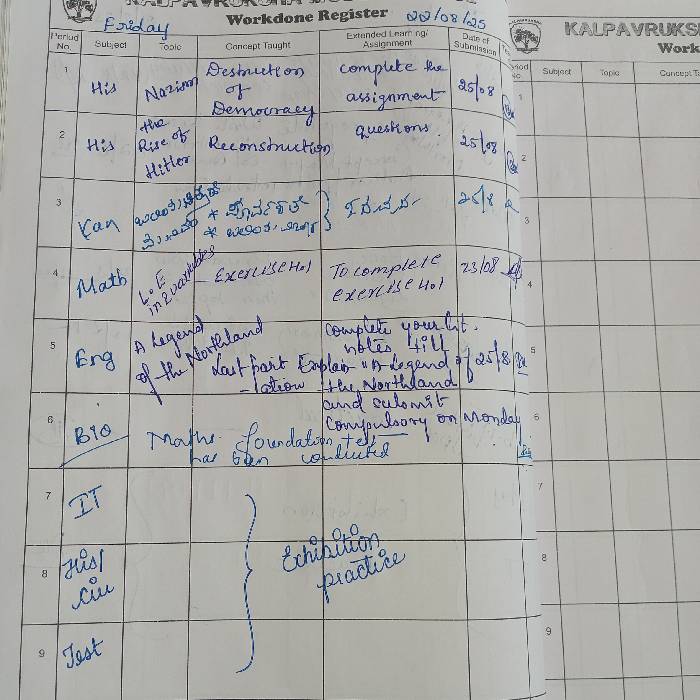 Workdone Register
Friday
22/08/25
Period No.
Subject
Topic
Concept Taught
Extended Learning/ Assignment
Date of Submission
1
His
Nazism
Destruction
of
Democracy
complete the
assignment
25/08
2
His
the
Rise of
Hitler
Reconstruction
questions.
25/08
3
Kan
25/8
4
Math
L.E
in 2 variables
- Exercise 4.1
To complete
exercise 4.1
23/08
5
Eng
A Legend
of the Northland
Last part Explan
- lation
complete your lit.
notes till
"A Legend of
the Northland
and submit
compulsory on Monday
25/8
6
BIO
Maths foundation test
has been conducted
7
IT
8
His/
Civ
Exhibition
practice
9
Test
KALPAVRUKS
Work
Subject
Topic
Concept Ta
1
2
3
4
5
6
7
8
9